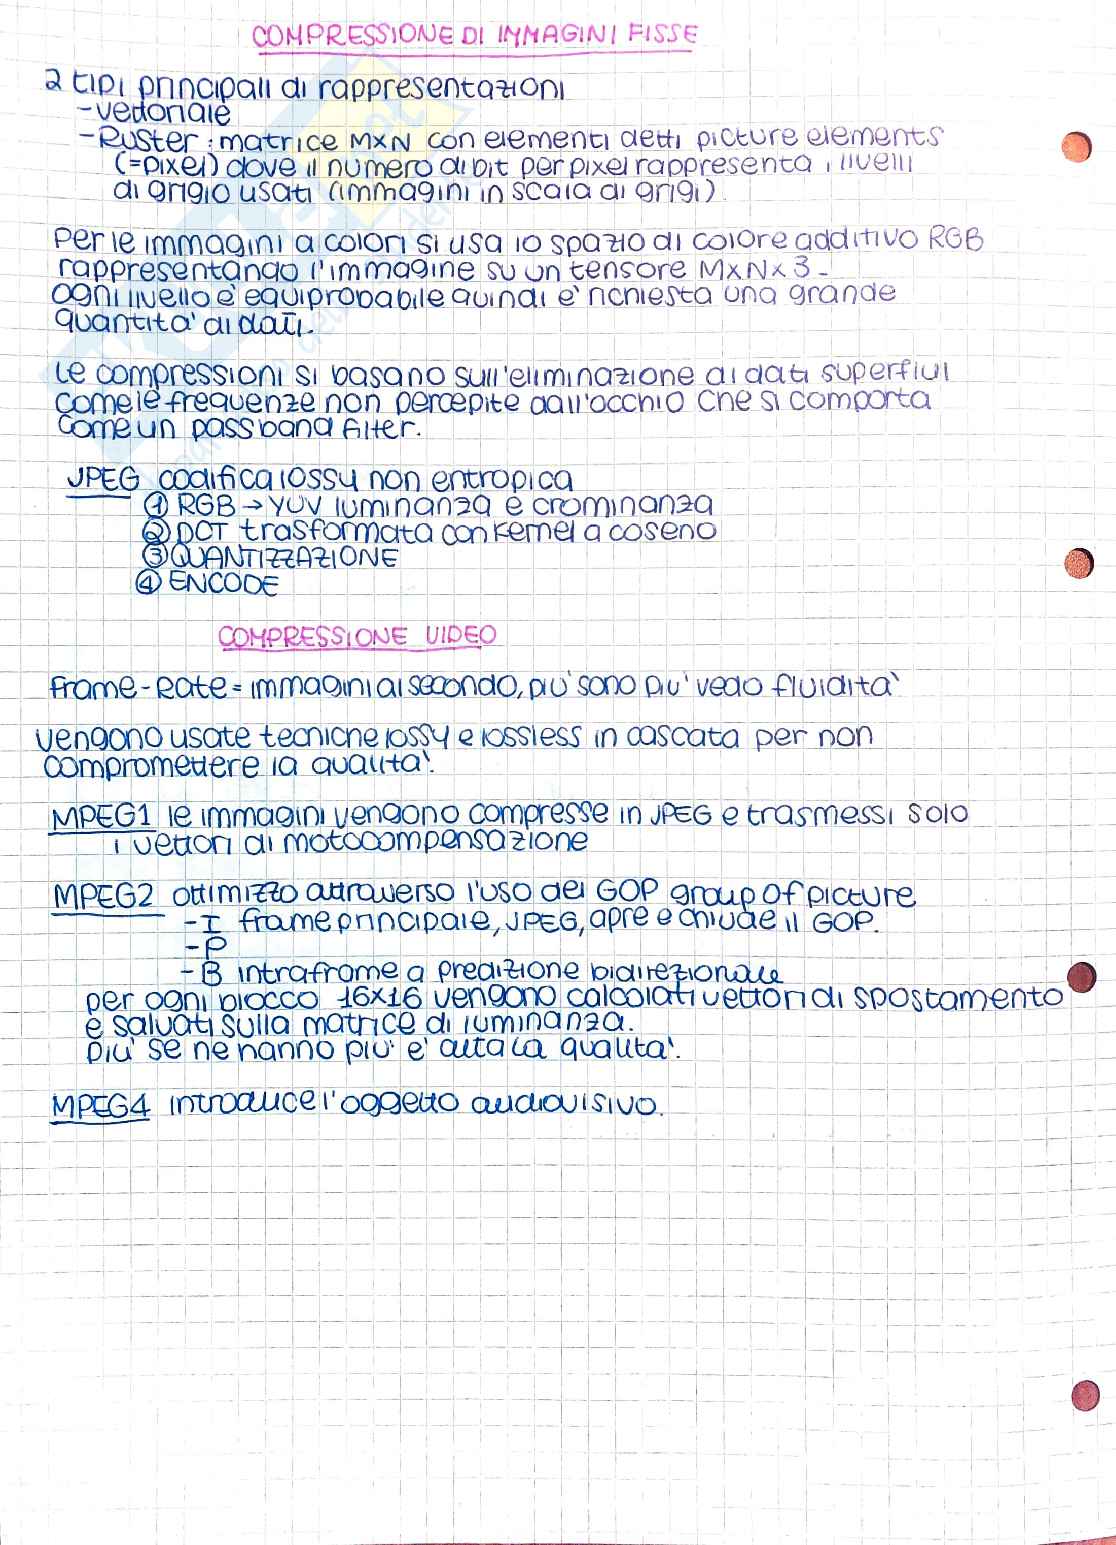 COMPRESSIONE DI IMMAGINI FISSE
2 tipi principali di rappresentazioni
-vettoriale
-Ruster: matrice MxN con elementi detti picture elements
(=pixel) dove il numero di bit per pixel rappresenta i livelli
di grigio usati (immagini in scala di grigi)
Per le immagini a colori si usa lo spazio di colore additivo RGB
rappresentando l'immagine su un tensore MxNx3-
ogni livello è equiprobabile quindi è richiesta una grande
quantità di dati.
Le compressioni si basano sull'eliminazione di dati superflui
come le frequenze non percepite dall'occhio che si comporta
come un passband filter.
JPEG codifica lossy non entropica
① RGB → YUV luminanza e crominanza
② DCT trasformata con kernel a coseno
③ QUANTIZZAZIONE
④ ENCODE
COMPRESSIONE VIDEO
Frame-Rate = immagini al secondo, più sono più vedo fluidità
Vengono usate tecniche lossy e lossless in cascata per non
compromettere la qualità.
MPEG1 le immagini vengono compresse in JPEG e trasmessi solo
i vettori di motocompensazione
MPEG2 ottimizzo attraverso l'uso dei GOP group of picture
-I frame principale, JPEG, apre e chiude il GOP.
-P
-B intraframe a predizione bidirezionale
per ogni blocco 16x16 vengono calcolati vettori di spostamento
e salvati sulla matrice di luminanza.
più se ne hanno più è alta la qualità.
MPEG4 introduce l'oggetto audiovisivo.